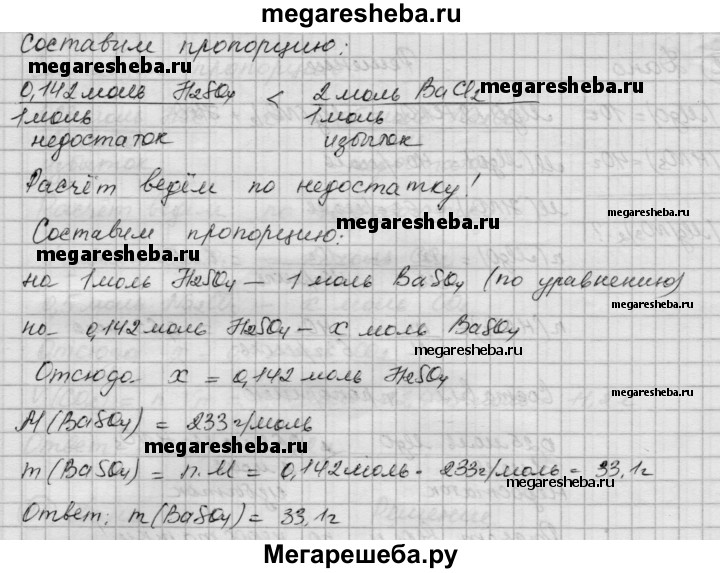 megaresheba.ru
Составим пропорцию:
megaresheba.ru
0,142 моль H₂SO₄ < 2 моль BaCl₂
1 моль 1 моль
недостаток избыток
megaresheba.ru
Расчёт ведём по недостатку!
megaresheba.ru
megaresheba.ru
Составим пропорцию:
megaresheba.ru
на 1 моль H₂SO₄ – 1 моль BaSO₄ (по уравнению)
megaresheba.ru
на 0,142 моль H₂SO₄ – x моль BaSO₄
megaresheba.ru
Отсюда x = 0,142 моль H₂SO₄
M (BaSO₄) = 233 г/моль
megaresheba.ru
m (BaSO₄) = n·M = 0,142 моль · 233 г/моль = 33,1 г
megaresheba.ru
Ответ: m (BaSO₄) = 33,1 г
Мегарешеба.ру